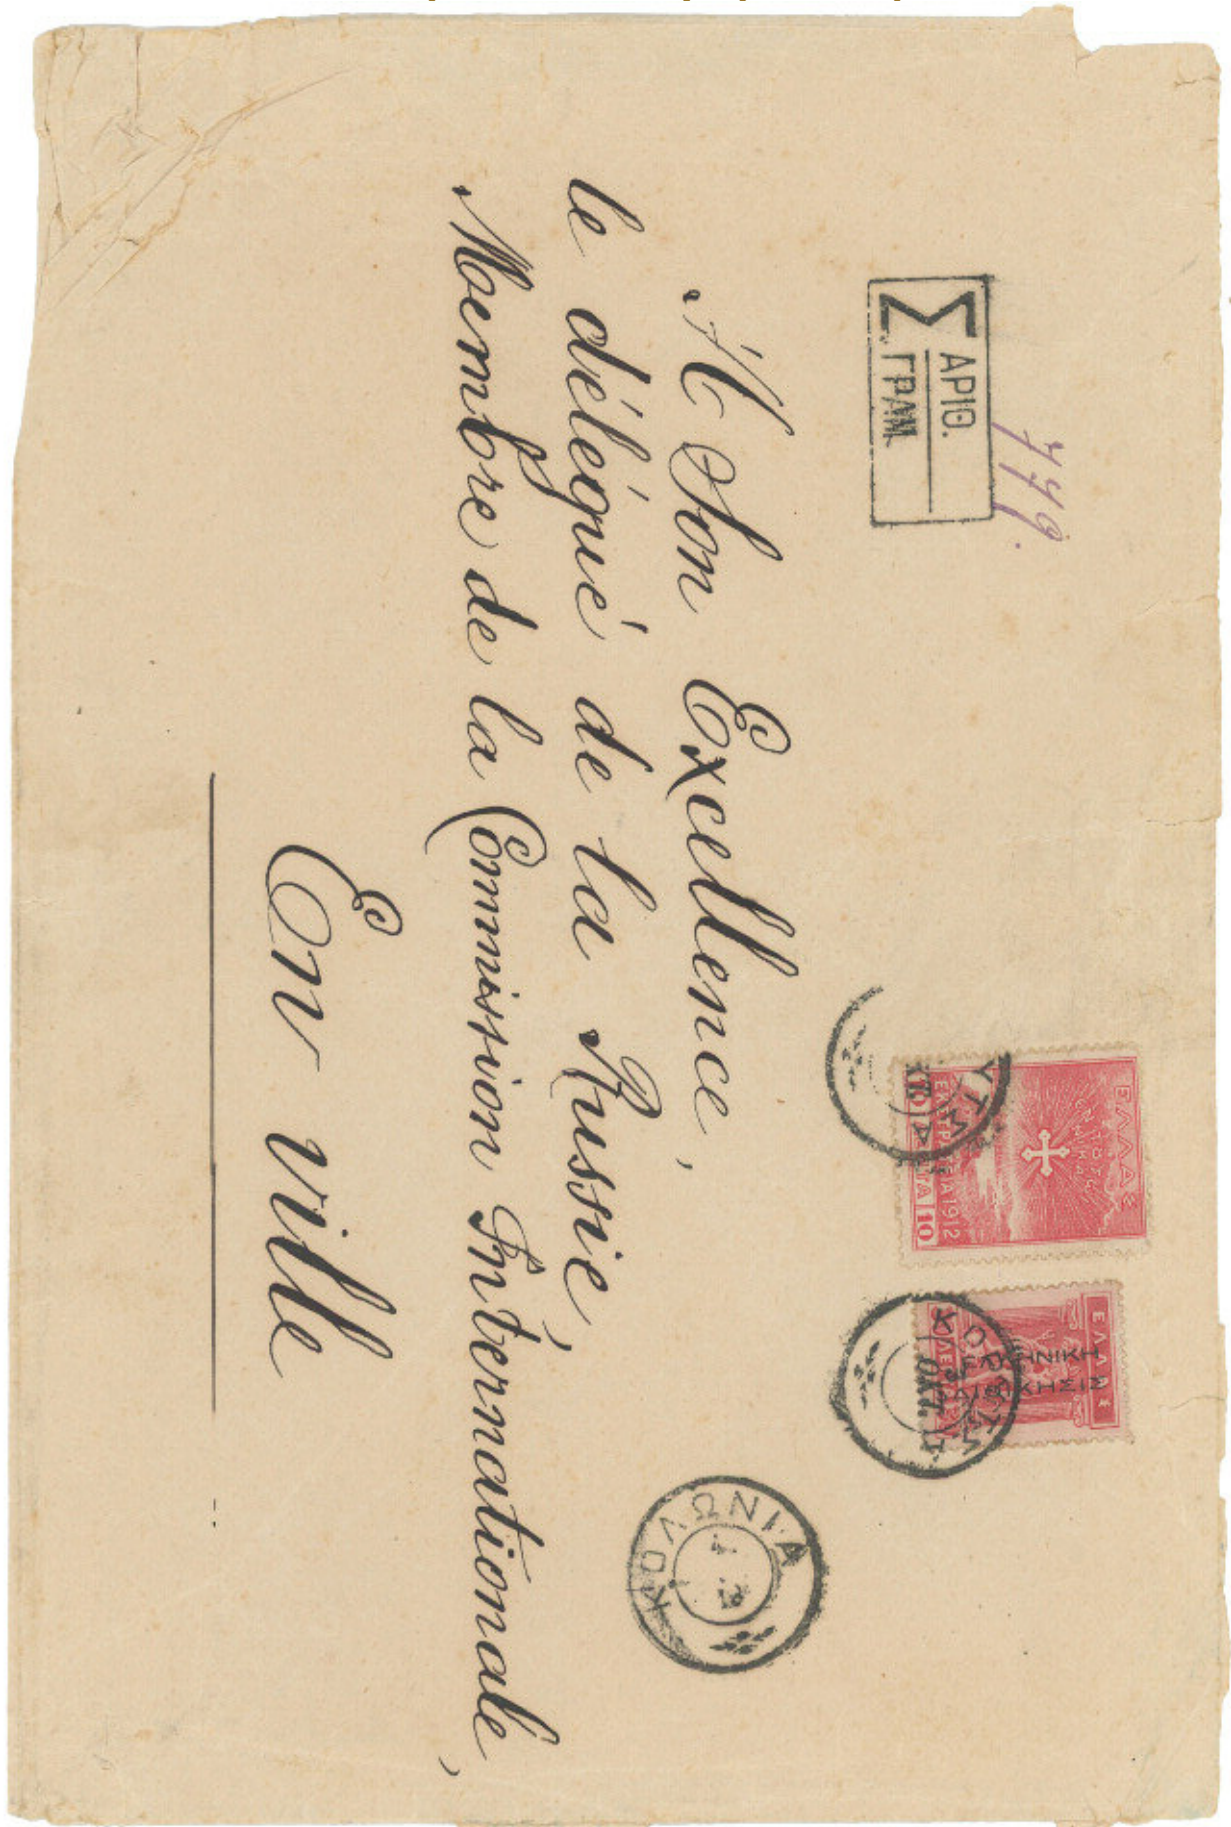 779.
Σ ΑΡΙΘ.
ΓΡΑΜ.
ΕΛΛΑΣ
ΕΝ ΤΟΥΤΩ ΝΙΚΑ
ΕΚΣΤΡΑΤΕΙΑ 1912
10 ΛΕΠΤΑ 10
ΕΛΛΑΣ
ΕΛΛΗΝΙΚΗ
ΔΙΟΙΚΗΣΙΣ
ΚΟΡΥΤΣΑ
ΟΚΤ.
ΚΟΛΩΝΙΑ
A Son Excellence,
le délégué de la Russie,
Membre de la Commission Internationale,
En ville